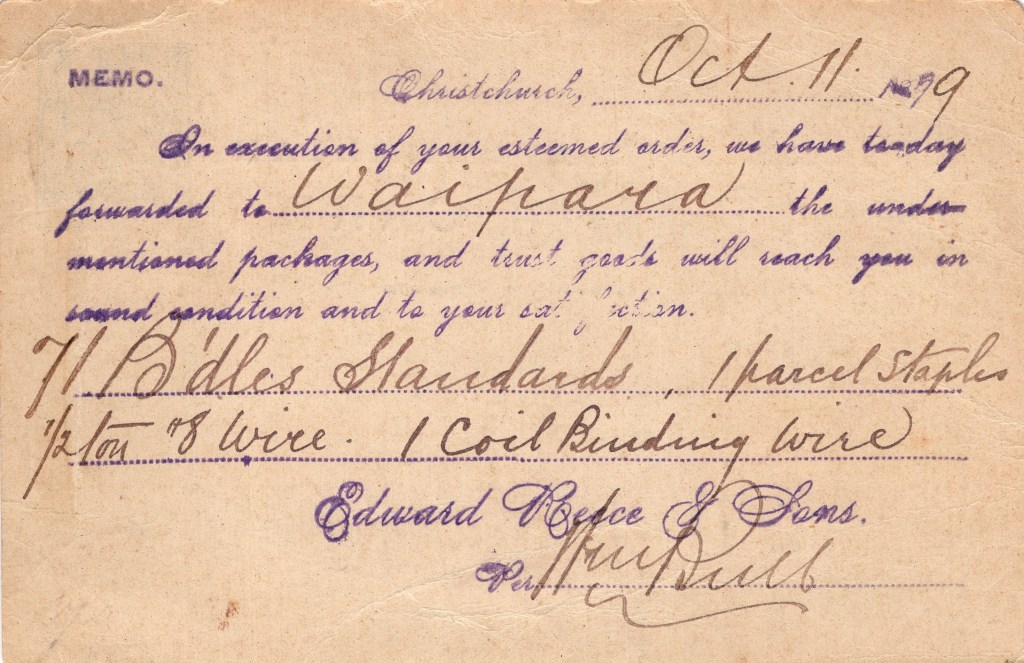 MEMO.
Christchurch, Oct. 11. 1899
In execution of your esteemed order, we have to-day
forwarded to Waipara the under-
mentioned packages, and trust goods will reach you in
sound condition and to your satisfaction.
71 B'dles Standards, 1 parcel Staples
1/2 ton "8 Wire. 1 Coil Binding Wire
Edward Reece & Sons.
Per Bull